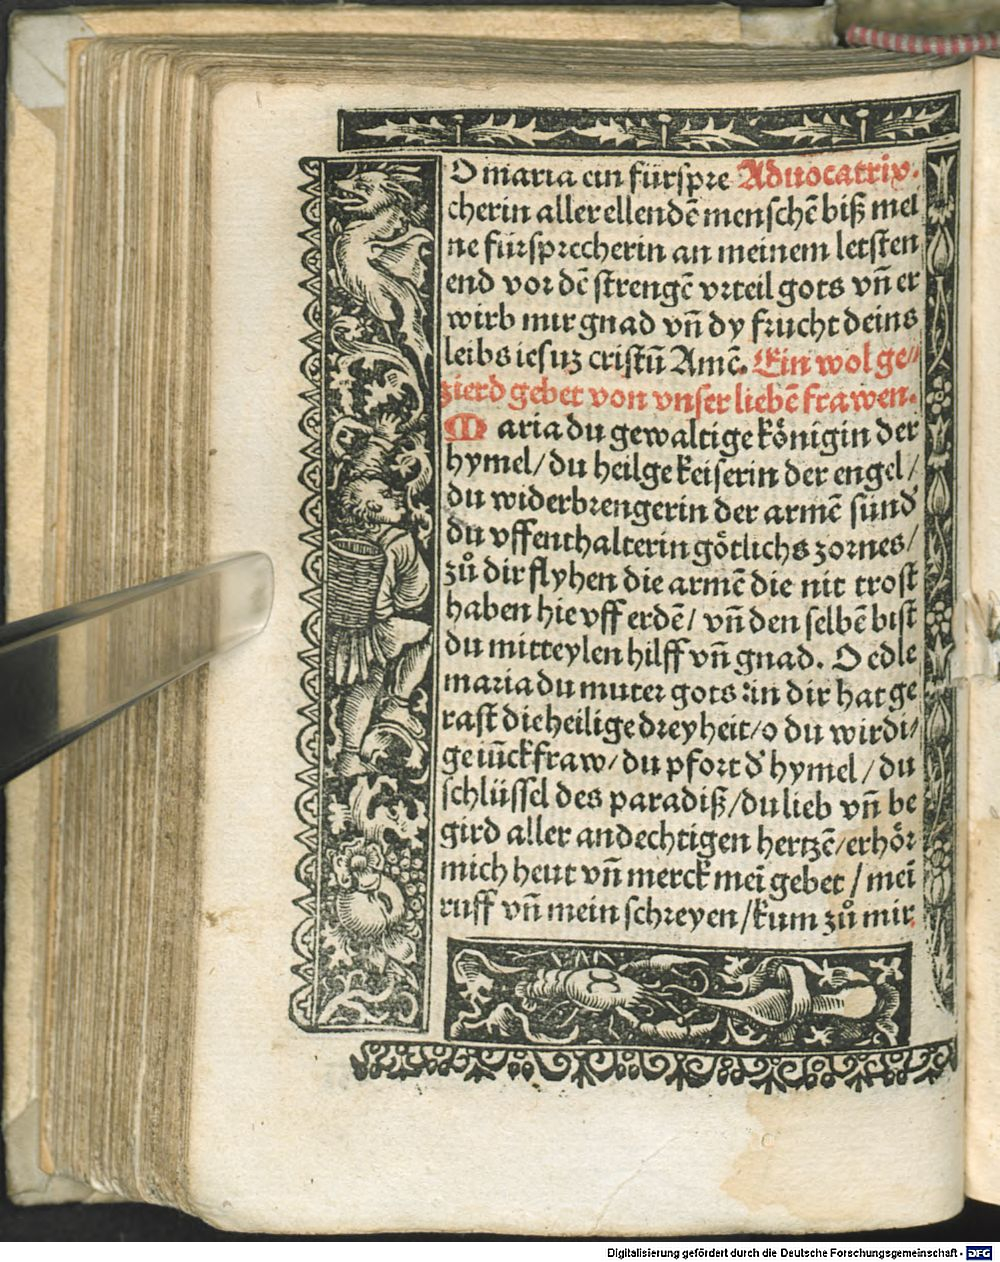 O maria ein fürspre Aduocatrix.
cherin aller ellendē menschē biß mei
ne fürsprecherin an meinem letsten
end vor dē strengē vrteil gots vn̄ er
wirb mir gnad vn̄ dy frucht deins
leibs iesuz cristū Amē. Ein wol ge⸗
zierd gebet von vnser liebē frawen.
Maria du gewaltige kônigin der
hymel/du heilge keiserin der engel/
du widerbrengerin der armē sünd'
du vffenthalterin gôtlichs zornes/
zů dir flyhen die armē die nit trost
haben hie vff erdē/ vn̄ den selbē bist
du mitteylen hilff vn̄ gnad. O edle
maria du muter gots :in dir hat ge
rast die heilige dreyheit/o du wirdi⸗
ge iūckfraw/du pfort d' hymel/du
schlüssel des paradiß/du lieb vn̄ be
gird aller andechtigen hertzē/erhôr
mich heut vn̄ merck meī gebet/meī
ruff vn̄ mein schreyen/kum zů mir
Digitalisierung gefördert durch die Deutsche Forschungsgemeinschaft - DFG